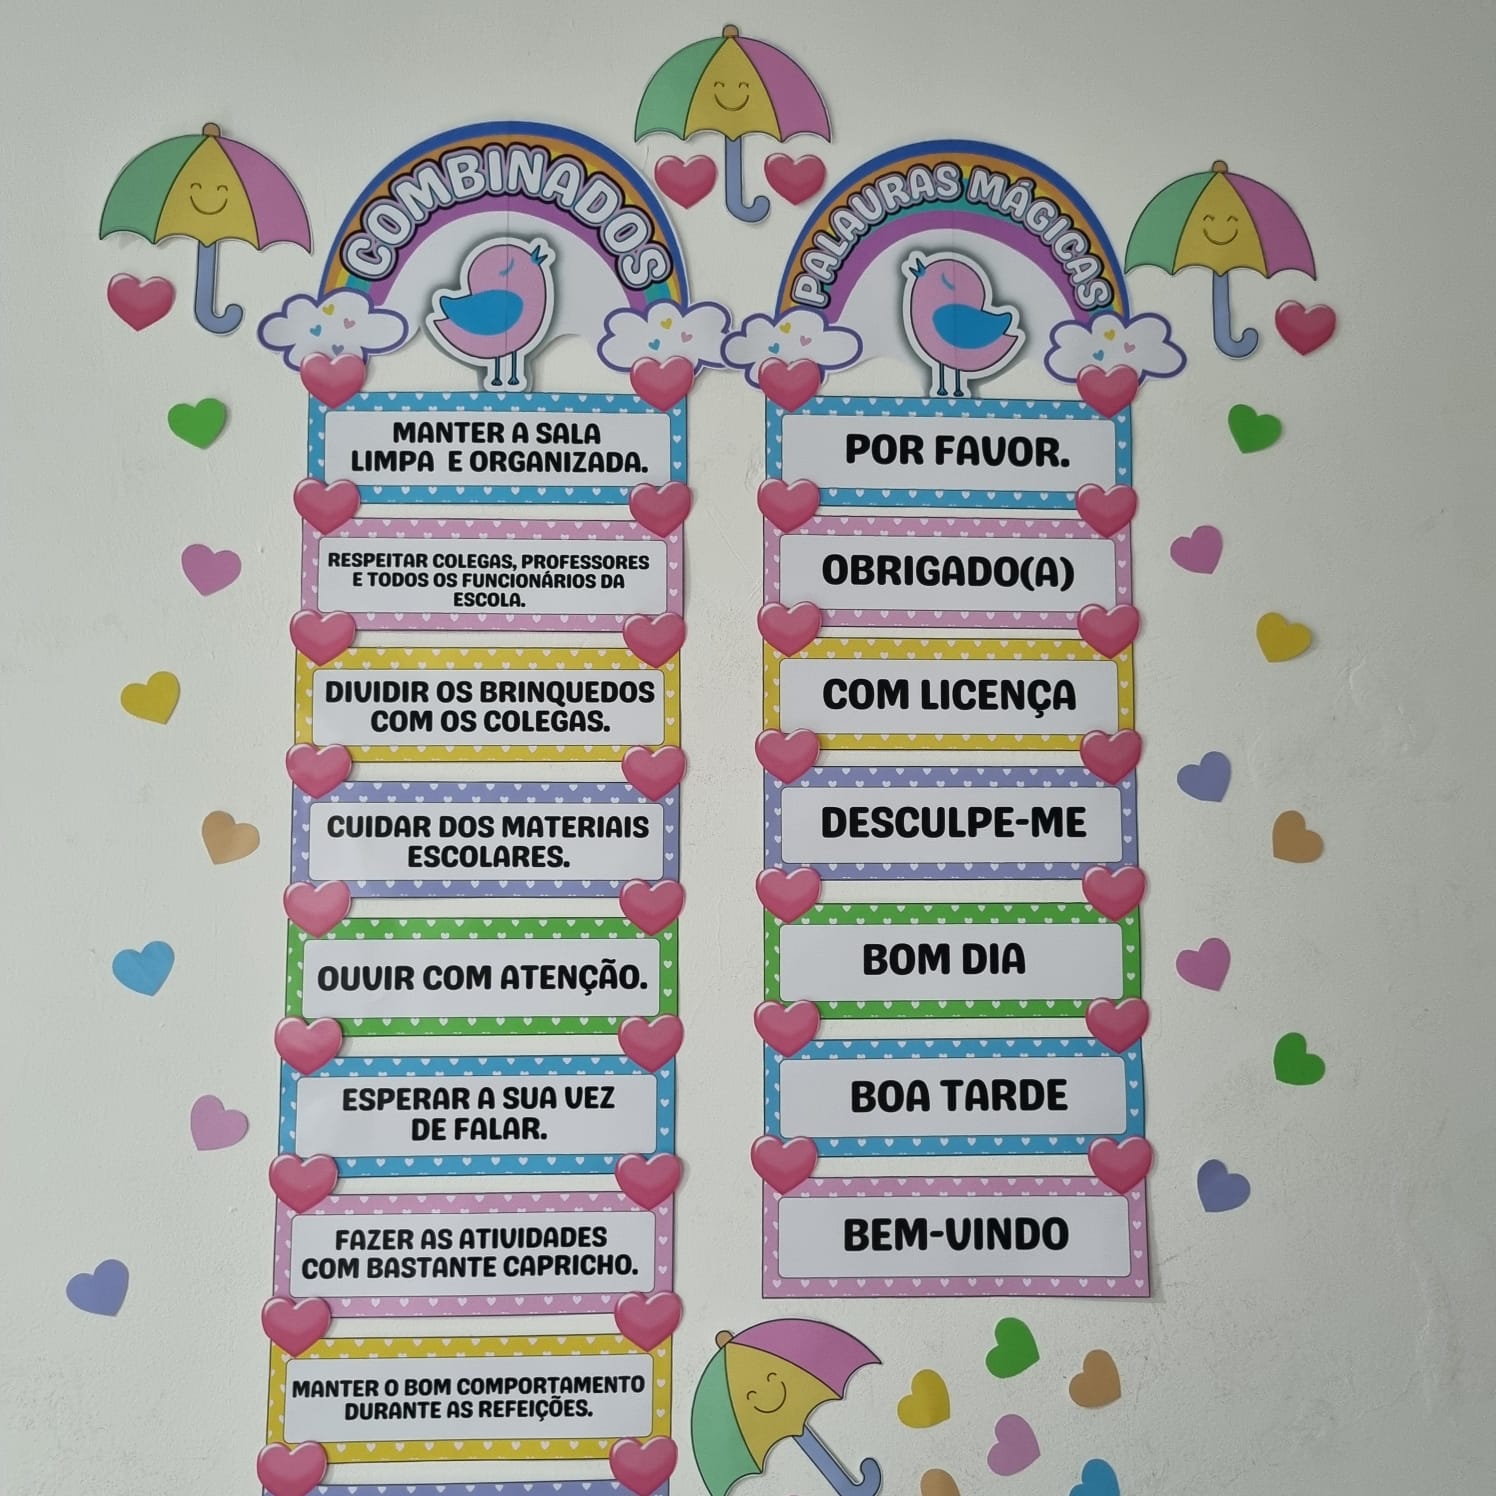 COMBINADOS
MANTER A SALA
LIMPA E ORGANIZADA.
RESPEITAR COLEGAS, PROFESSORES
E TODOS OS FUNCIONÁRIOS DA
ESCOLA.
DIVIDIR OS BRINQUEDOS
COM OS COLEGAS.
CUIDAR DOS MATERIAIS
ESCOLARES.
OUVIR COM ATENÇÃO.
ESPERAR A SUA VEZ
DE FALAR.
FAZER AS ATIVIDADES
COM BASTANTE CAPRICHO.
MANTER O BOM COMPORTAMENTO
DURANTE AS REFEIÇÕES.
PALAVRAS MÁGICAS
POR FAVOR.
OBRIGADO(A)
COM LICENÇA
DESCULPE-ME
BOM DIA
BOA TARDE
BEM-VINDO